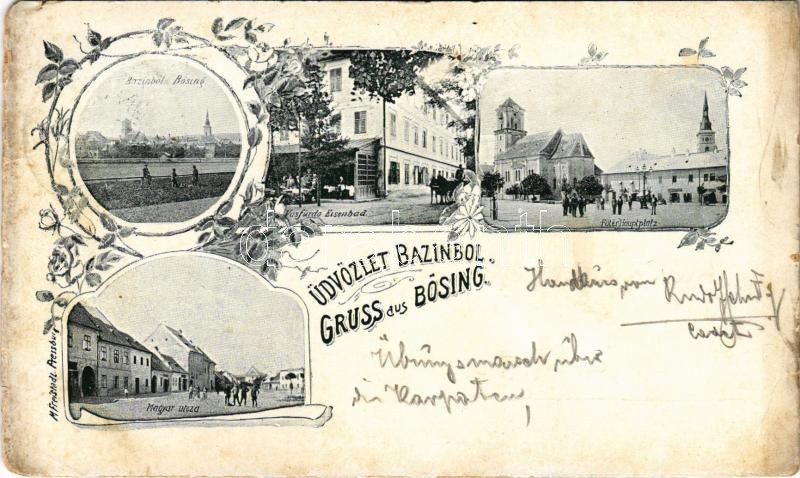 Bazinból Bösing
Vasfürdo Eisenbad
Főtér Hauptplatz
ÜDVÖZLET BAZINBÓL.
GRUSS aus BÖSING.
Magyar utcza
Handkuss, von
Übungsmarsch über
die Karpaten,